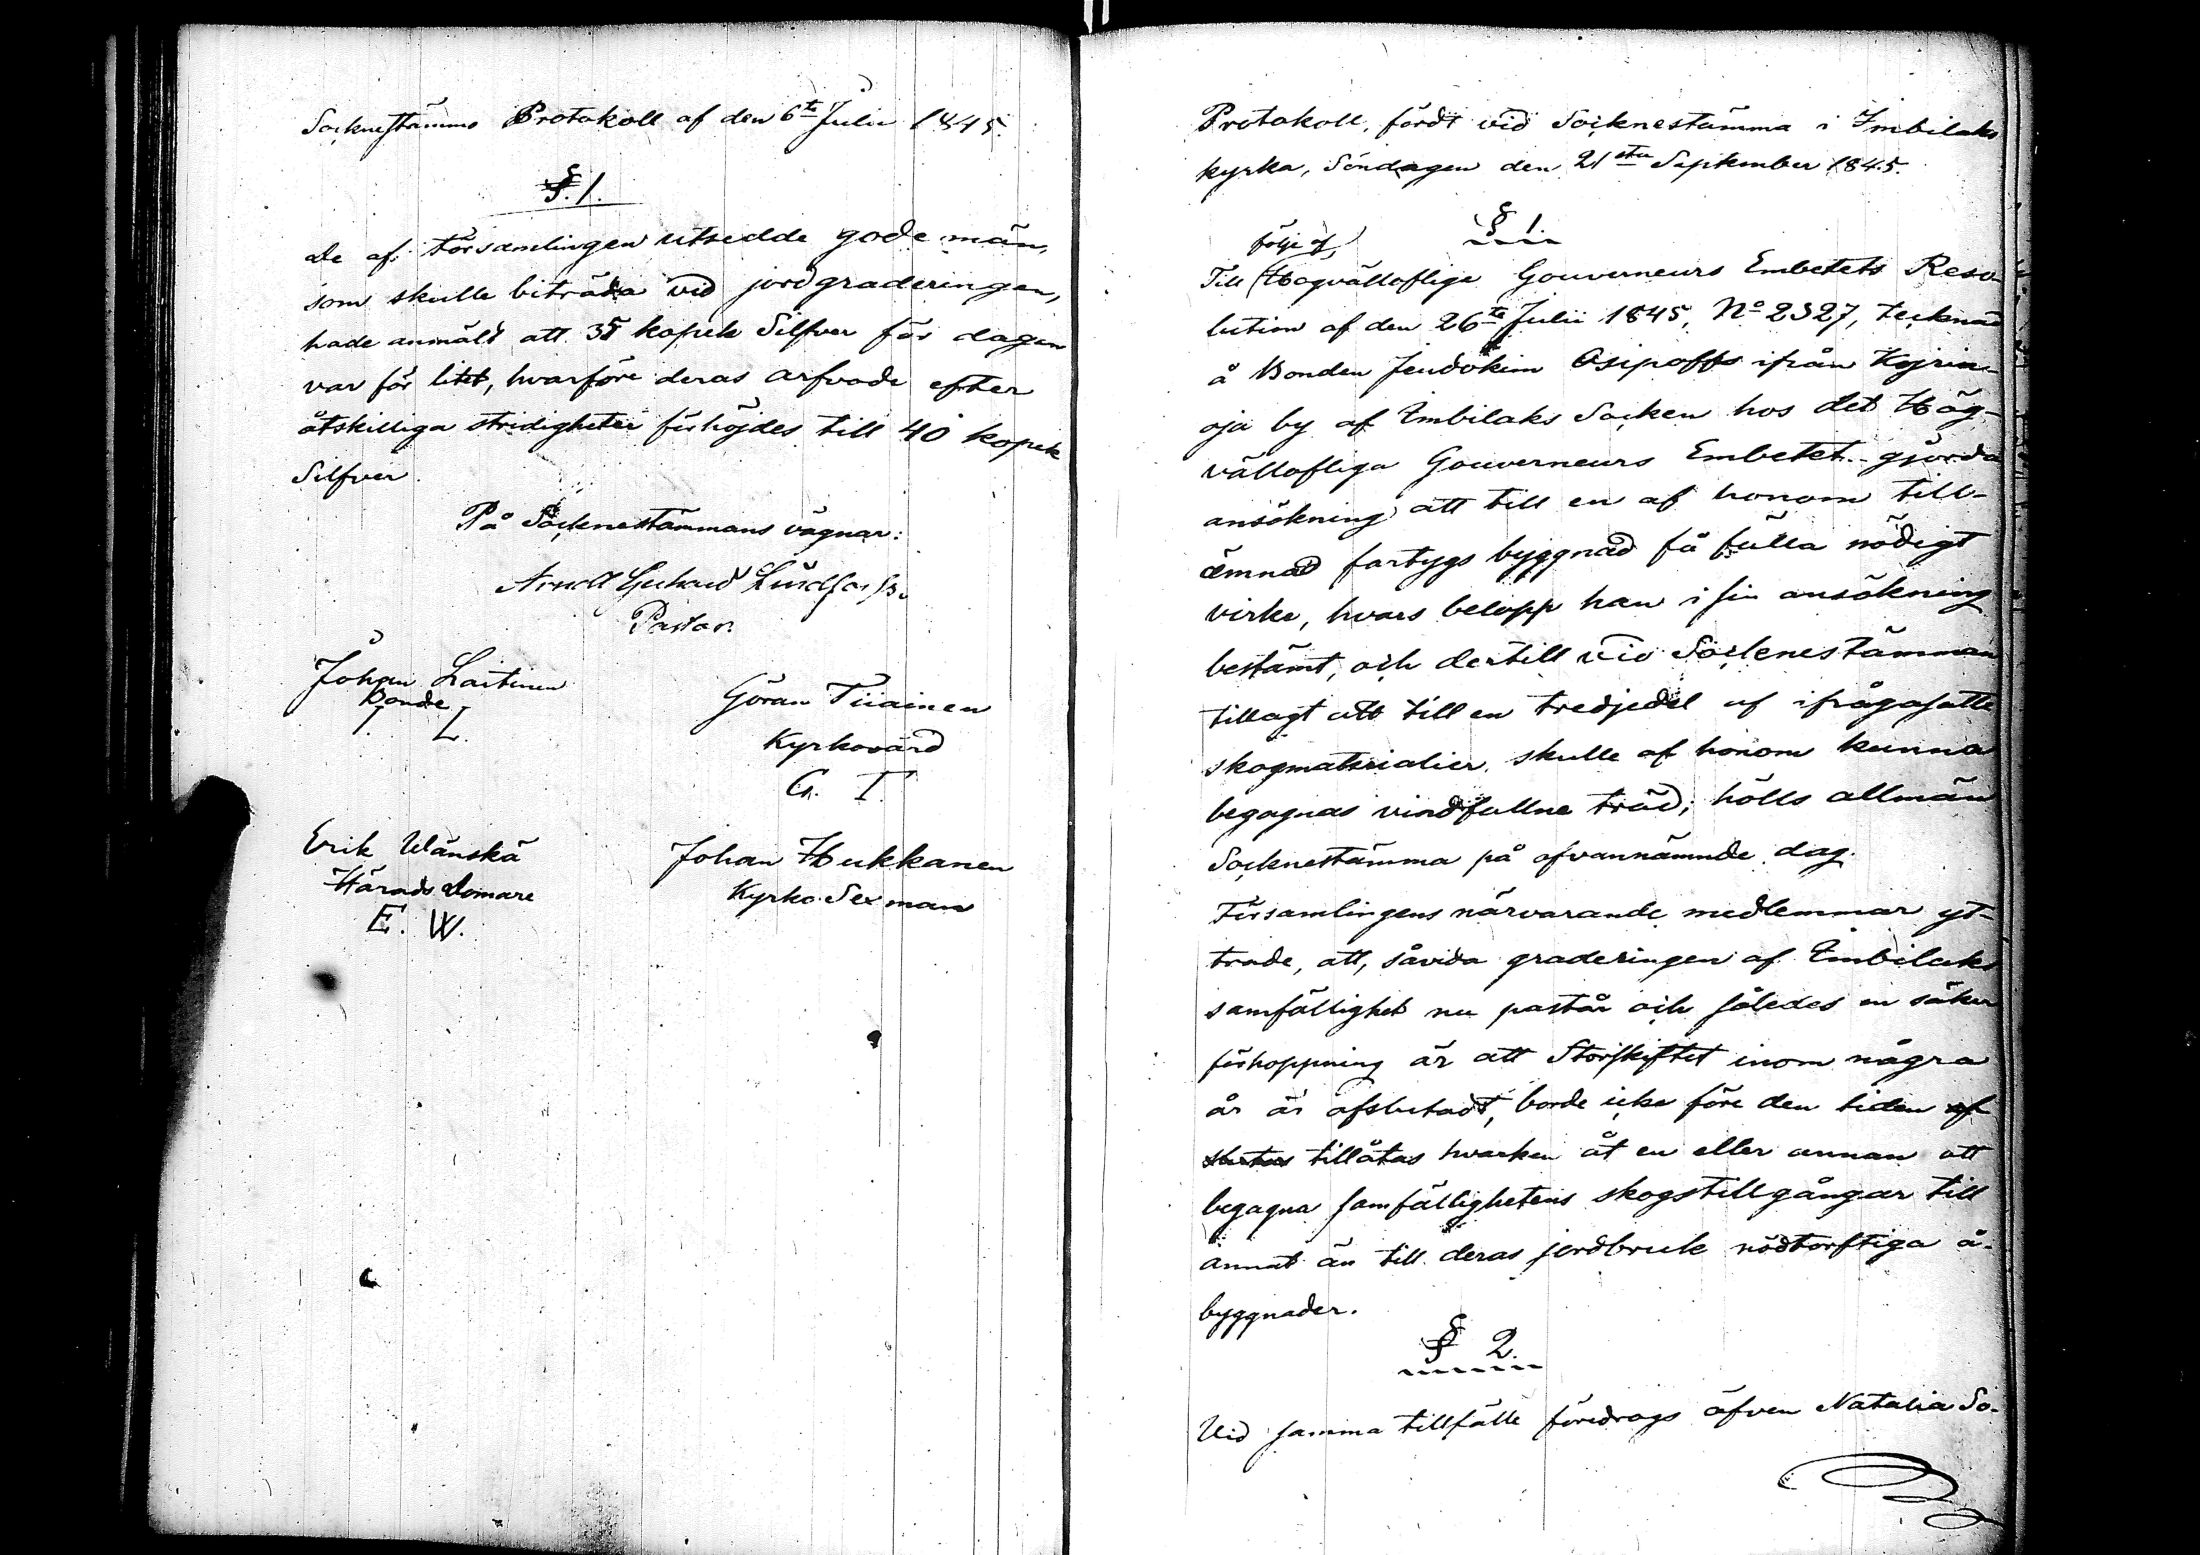 Socknestämmo Protokoll af den 6te Julii 1845.
§. 1.
de af Församlingen utsedde gode män,
som skulle biträda vid jordgraderingen,
hade anmält att 35 kopek Silfver för dagen
var för litet, hvarföre deras arfvode efter
åtskilliga stridigheter förhöjdes till 40 kopek
Silfver.
På Socknestämmans vägnar:
Arndt Gerhard Lindfors
Pastor.
Johan Laitinen
Bonde
I. L.
Göran Tiiainen
Kyrkovärd
G. T.
Erik Wänskä
Härads domare
E. W.
Johan Hukkanen
Kyrko Sexman
Protokoll, fördt vid Socknestämma i Imbilaks
kyrka, Söndagen den 21sta September 1845.
§ 1.
följe af
Till Högvälloflige Gouverneurs Embetets Reso-
lution af den 26te Julii 1845, No 2327, tecknad
å Bonden Jeudokim Osipoffs ifrån Kyrin-
oja by af Imbilaks Socken hos det Hög-
vällofliga Gouverneurs Embetet gjorda
ansökning att till en af honom till-
ämnad fartygs byggnad få fälla nödigt
virke, hvars belopp han i sin ansökning
bestämt, och dertill vid Socknestämman
tillagt att till en tredjedel af ifrågasatte
skogmaterialier skulle af honom kunna
begagnas vindfallne träd; hölls allmän
Socknestämma på ofvannämnde dag.
Församlingens närvarande medlemmar yt-
trade, att, såvida graderingen af Imbilaks
samfällighet nu påstår och således en säker
förhoppning är att Storskiftet inom några
år är afslutadt, borde icke före den tiden af
slutas tillåtas hvarken åt en eller annan att
begagna samfällighetens skogstillgångar till
annat än till deras jordbruk nödtorftiga å-
byggnader.
§ 2
Vid samma tillfälle föredrogs äfven Natalia So-